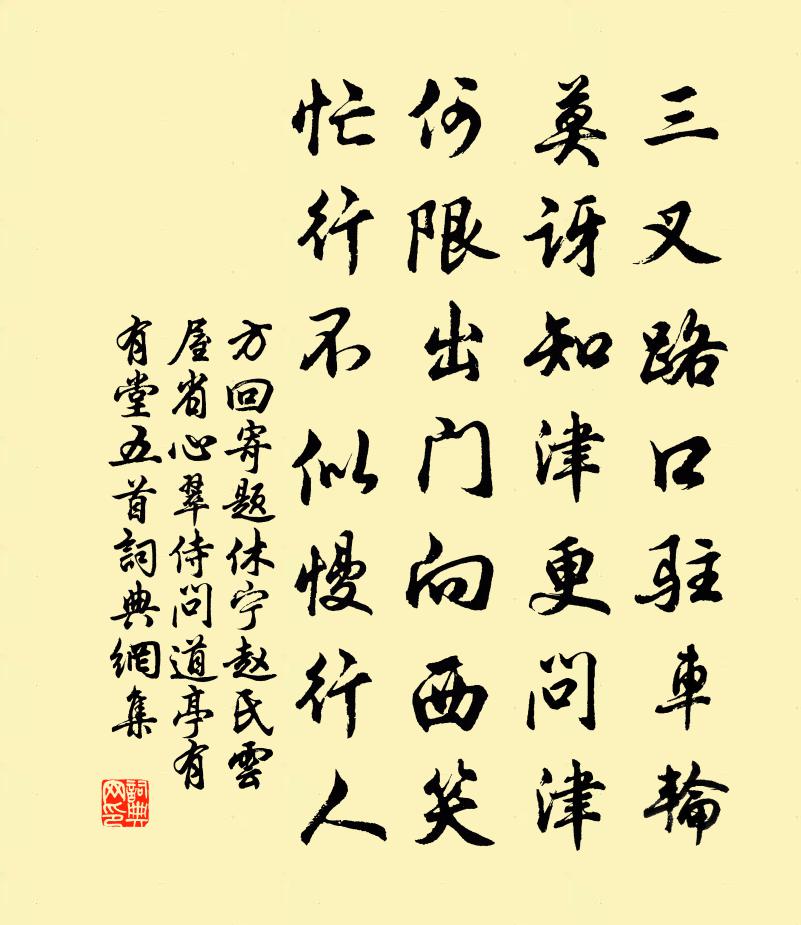 三叉路口駐車輪
莫訝知津更問津
何限出门向西笑
忙行不似慢行人
方回寄題休宁赵氏雲
屋省心翠侍问道亭有
有堂五首詞典網集
詞典网印